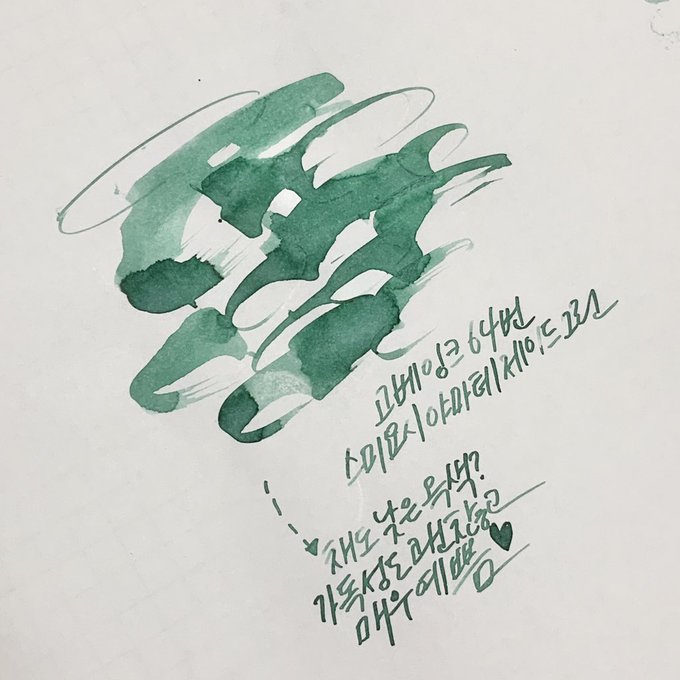 고베잉크 64번
스미요시 야마테 제이드 그린
채도 낮은 옥색?
가독성도 괜찮고
매우 예쁨